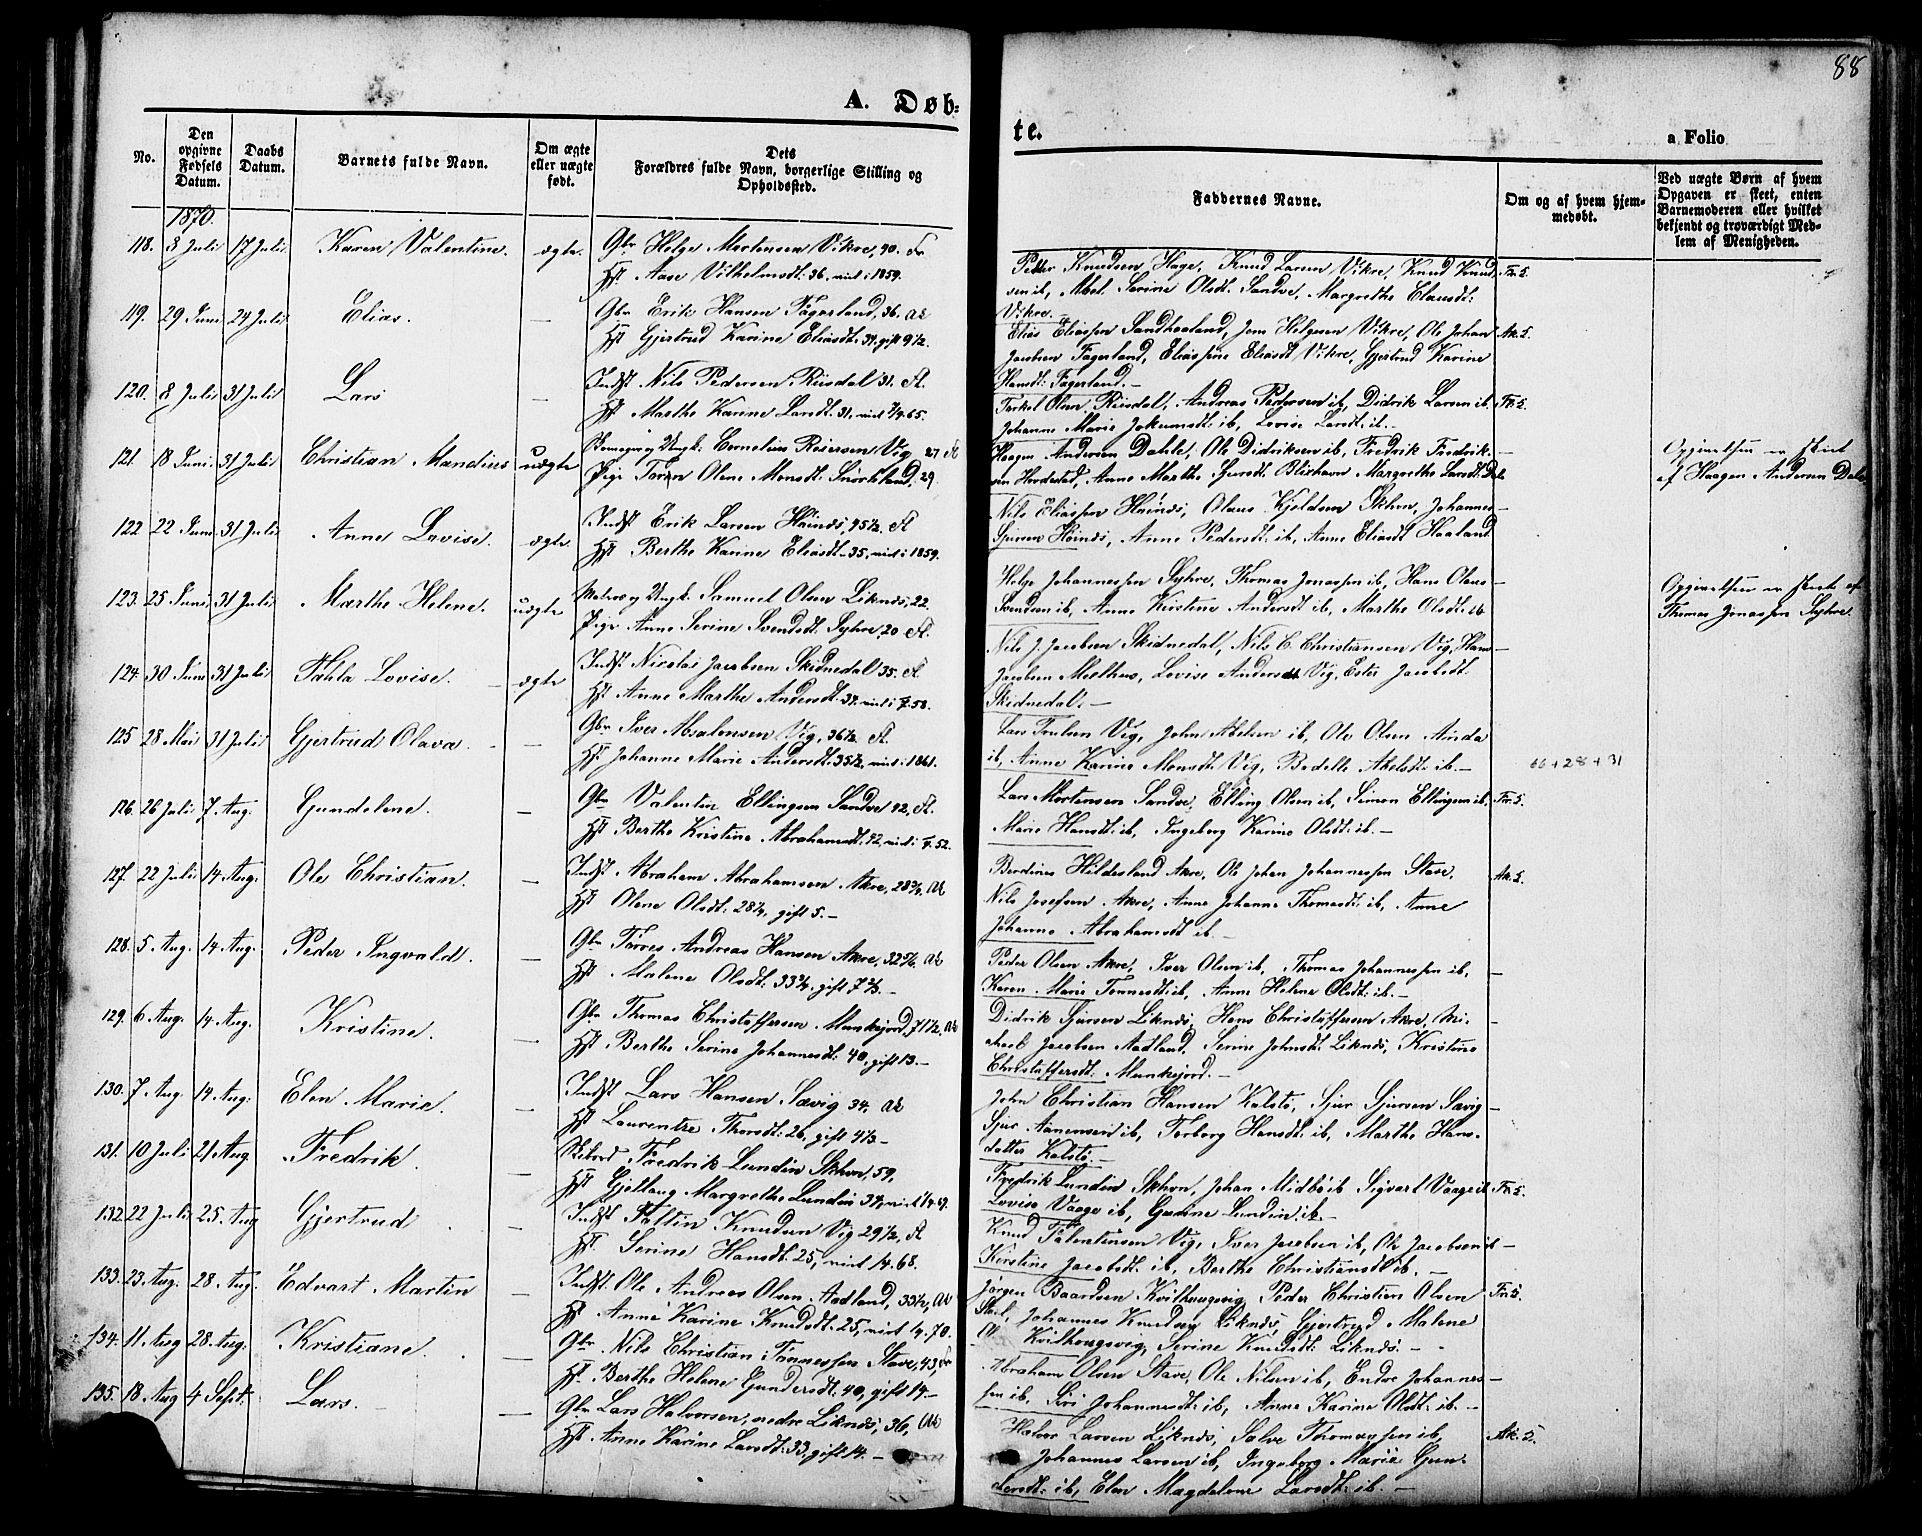 88
A. Døb-
te.
a Folio
No.
Den opgivne Fødsels Datum.
Daabs Datum.
Barnets fulde Navn.
Om ægte eller uægte født.
Dets Forældres fulde Navn, borgerlige Stilling og Opholdssted.
Faddernes Navne.
Om og af hvem hjemmedøbt.
Ved uægte Børn af hvem Opgaven er skeet, enten Barnemoderen eller hvilket bekjendt og troværdigt Medlem af Menigheden.
1870.
118. 8 Juli 17 Juli Karen Valentine. ægte. Gbr Helge Mortensen Vikre, 40. Fr
Hst Aase Vilhelmsdt: 36, viet i 1859.
Petter Knudsen Hage, Knud Larsen Vikre, Knud Knud- Fr. 5.
sen ib, Abel Serine Olsdt. Sandve, Margrethe Clausdt:
Vikre.
119. 29 Juni 24 Juli Elias. — Gbr Erik Hansen Fagerland, 36. Ak
Hst Gjertrud Karine Eliasdt: 31, gift 9½.
Elias Eliassen Sandhaaland, Jens Helgesen Vikre, Ole Johan Ak. 5.
Jacobsen Fagerland, Eliassine Eliasdt Vikre, Gjertrud Karine
Hansdt: Fagerland. —
120. 8 Juli 31 Juli Lars — Indst Nils Pedersen Riisdal 31. Fl.
Hst Marthe Karine Larsdt: 31, viet 7/4 65.
Torkel Olsen Riisdal, Andreas Pedersen ib, Didrik Larsen ib. Fr. 5.
Johanne Marie Jokumsdt: ib, Lovise Larsdt: ib. —
121. 18 Juni 31 Juli Christian Mandius uægte Ungk: Cornelius Reiersen Vig 27 Fl
Pige Toren Olene Monsdt: 29.
Haagen Andersen Dahle, Ole Didriksen ib, Fredrik Fredrik- —
sen Hordestad, Anne Marthe Sjursdt: Blixhavn, Margrethe Larsdt: Dale
Opgivelsen er skeet
af Haagen Andersen Dale
122 22 Juni 31 Juli Anne Lovise. ægte. Indst Erik Larsen Høinæs, 45½. Fl
Hst Berthe Karine Eliasdt. 35, viet i 1859.
Nils Eliassen Høinæs, Olaus Kjeldsen Skhen, Johannes —
Sjursen Høinæs, Anne Pedersdt: ib, Anne Eliasdt Haaland
123. 25 Juni 31 Juli Marthe Helene. uægte Ungk: Samuel Olsen Liknæs, 22.
Pige Anne Serine Svendsdt: Syhre, 20 Fl.
Helge Johannessen Syhre, Thomas Jonassen ib, Hans Olaus —
Svendsen ib, Anne Kristine Andersdt ib, Marthe Olsdt: ib
Opgivelsen er skeet af
Thomas Jonassen Syhre.
124. 30 Juni 31 Juli Tahla Lovise. — ægte Indst Nicolai Jacobsen Skidnedal 35. Fl
Hst Anne Marthe Andersdt: 34, viet i 58.
Nils J. Jacobsen Skidnedal, Nils C. Christiansen Vig, Hans —
Jacobsen Mælhus, Lovise Andersdt Vig, Ester Jacobsdt.
Skidnedal: —
125 28 Mai 31 Juli Gjertrud Olava. — Gbr Iver Absalonsen Vig, 36½. Fl
Hst: Johanne Marie Andersdt: 35½, viet i 1861.
Lars Truelsen Vig, John Abelsen ib, Ole Olsen Ainda
ib, Anne Karine Monsdt: Vig, Bodelle Akelsdt: ib. —
66+28+31
126. 26 Juli 7 Aug. Gundelene. — Gbr Valentin Ellingsen Sandve 42, Fl.
Hst Berthe Kristine Abrahamsdt: 42, viet i 52.
Lars Mortensen Sandve, Elling Olsen ib, Simon Ellingsen ib. Fr. 5.
Marie Hansdt: ib, Ingeborg Karine Olsdt: ib. —
127. 22 Juli 14 Aug. Ole Christian. — Indst Abraham Abrahamsen Akre, 28¾, Ak
Hst Olene Olsdt: 28¼, gift 5. —
Berdines Hildesland Akre, Ole Johan Johannessen Stave, Ak. 5.
Nils Josefsen Akre, Anne Johanne Thomasdt: ib, Anne
Johanne Abrahamsdt ib. —
128. 5 Aug. 14 Aug. Peder Ingvald. — Gbr Tørres Andreas Hansen Akre, 32 5/6, Ak
Hst Malene Olsdt: 33¼, gift 7⅔. —
Peder Olsen Akre, Iver Olsen ib, Thomas Johannessen ib, —
Karen Marie Tønnesdt: ib, Anne Helene Olsdt: ib. —
129. 6 Aug. 14 Aug. Kristine. — Gbr Thomas Christoffersen Munkejord, 41½, Ak
Hst Berthe Serine Johannesdt: 40, gift 13. —
Didrik Sjursen Liknæs, Hans Christoffersen Akre, Mi- —
chael Jacobsen Aadland, Serine Johnsdt: Liknæs, Kristine
Christoffersdt: Munkejord. —
130. 7 Aug. 14 Aug. Elen Marie. — Indst Lars Hansen Sævig 34, Ak
Hst Laurentze Thorsdt: 26, gift 4⅓ —
John Christian Hansen Kalstø, Sjur Sjursen Sævig —
Sjur Aanensen ib, Torborg Hansdt: ib, Marthe Hans-
datter Kalstø. —
131. 10 Juli 21 Aug. Fredrik. — Fredrik Lundin Skhen, 59,
Hst Gjøllaug Margrethe Lundin 34, viet 69.
Fredrik Lundin Skhen, Johan Midbø ib Sigvart Vaage ib Fr. 5.
Lovise Vaage ib, Gurine Lundin ib. —
132 22 Juli 25. Aug Gjertrud — Indst Faltin Knudsen Vig 29½, Fl
Hst Serine Hansdt. 25, viet 14. 68.
Knud Falentinsen Vig, Iver Jacobsen ib, Ole Jacobsen ib —
Kirstine Jacobsdt: ib, Berthe Christiansdt ib. —
133. 23. Aug. 28. Aug. Edvart Martin — Indst. Ole Andreas Olsen Aadland, 33½, Ak
Hst Anne Karine Knudsdt: 25, viet 70.
Jørgen Baardsen Kvilhougsvig, Peder Christian Olsen Fr. 5.
Johannes Knudsen Liknæs, Gjertrud Malene
Kvilhougsvig, Serine Knudsdt: Liknæs. —
134. 11. Aug 28. Aug. Kristiane. — Gbr Nils Christian Tønnessen Stave, 43, Fr
Hst Berthe Helene Gundersdt: 40, gift 14. —
Abraham Olsen Stave, Ole Nilsen ib, Endre Johannes- —
sen ib, Siri Johannesdt: ib, Anne Karine Olsdt: ib. —
135. 18. Aug 4 Sept. Lars. — Gbr Lars Halvorsen, nedre Liknæs, 36, Ak
Hst Anne Karine Larsdt: 33, gift 14. —
Halvor Larsen Liknæs, Salve Thomassen ib, Ak. 5.
Johannes Larsen ib, Ingeborg Marie Gun-
dersdt: ib, Elen Magdelene Larsdt: ib. —